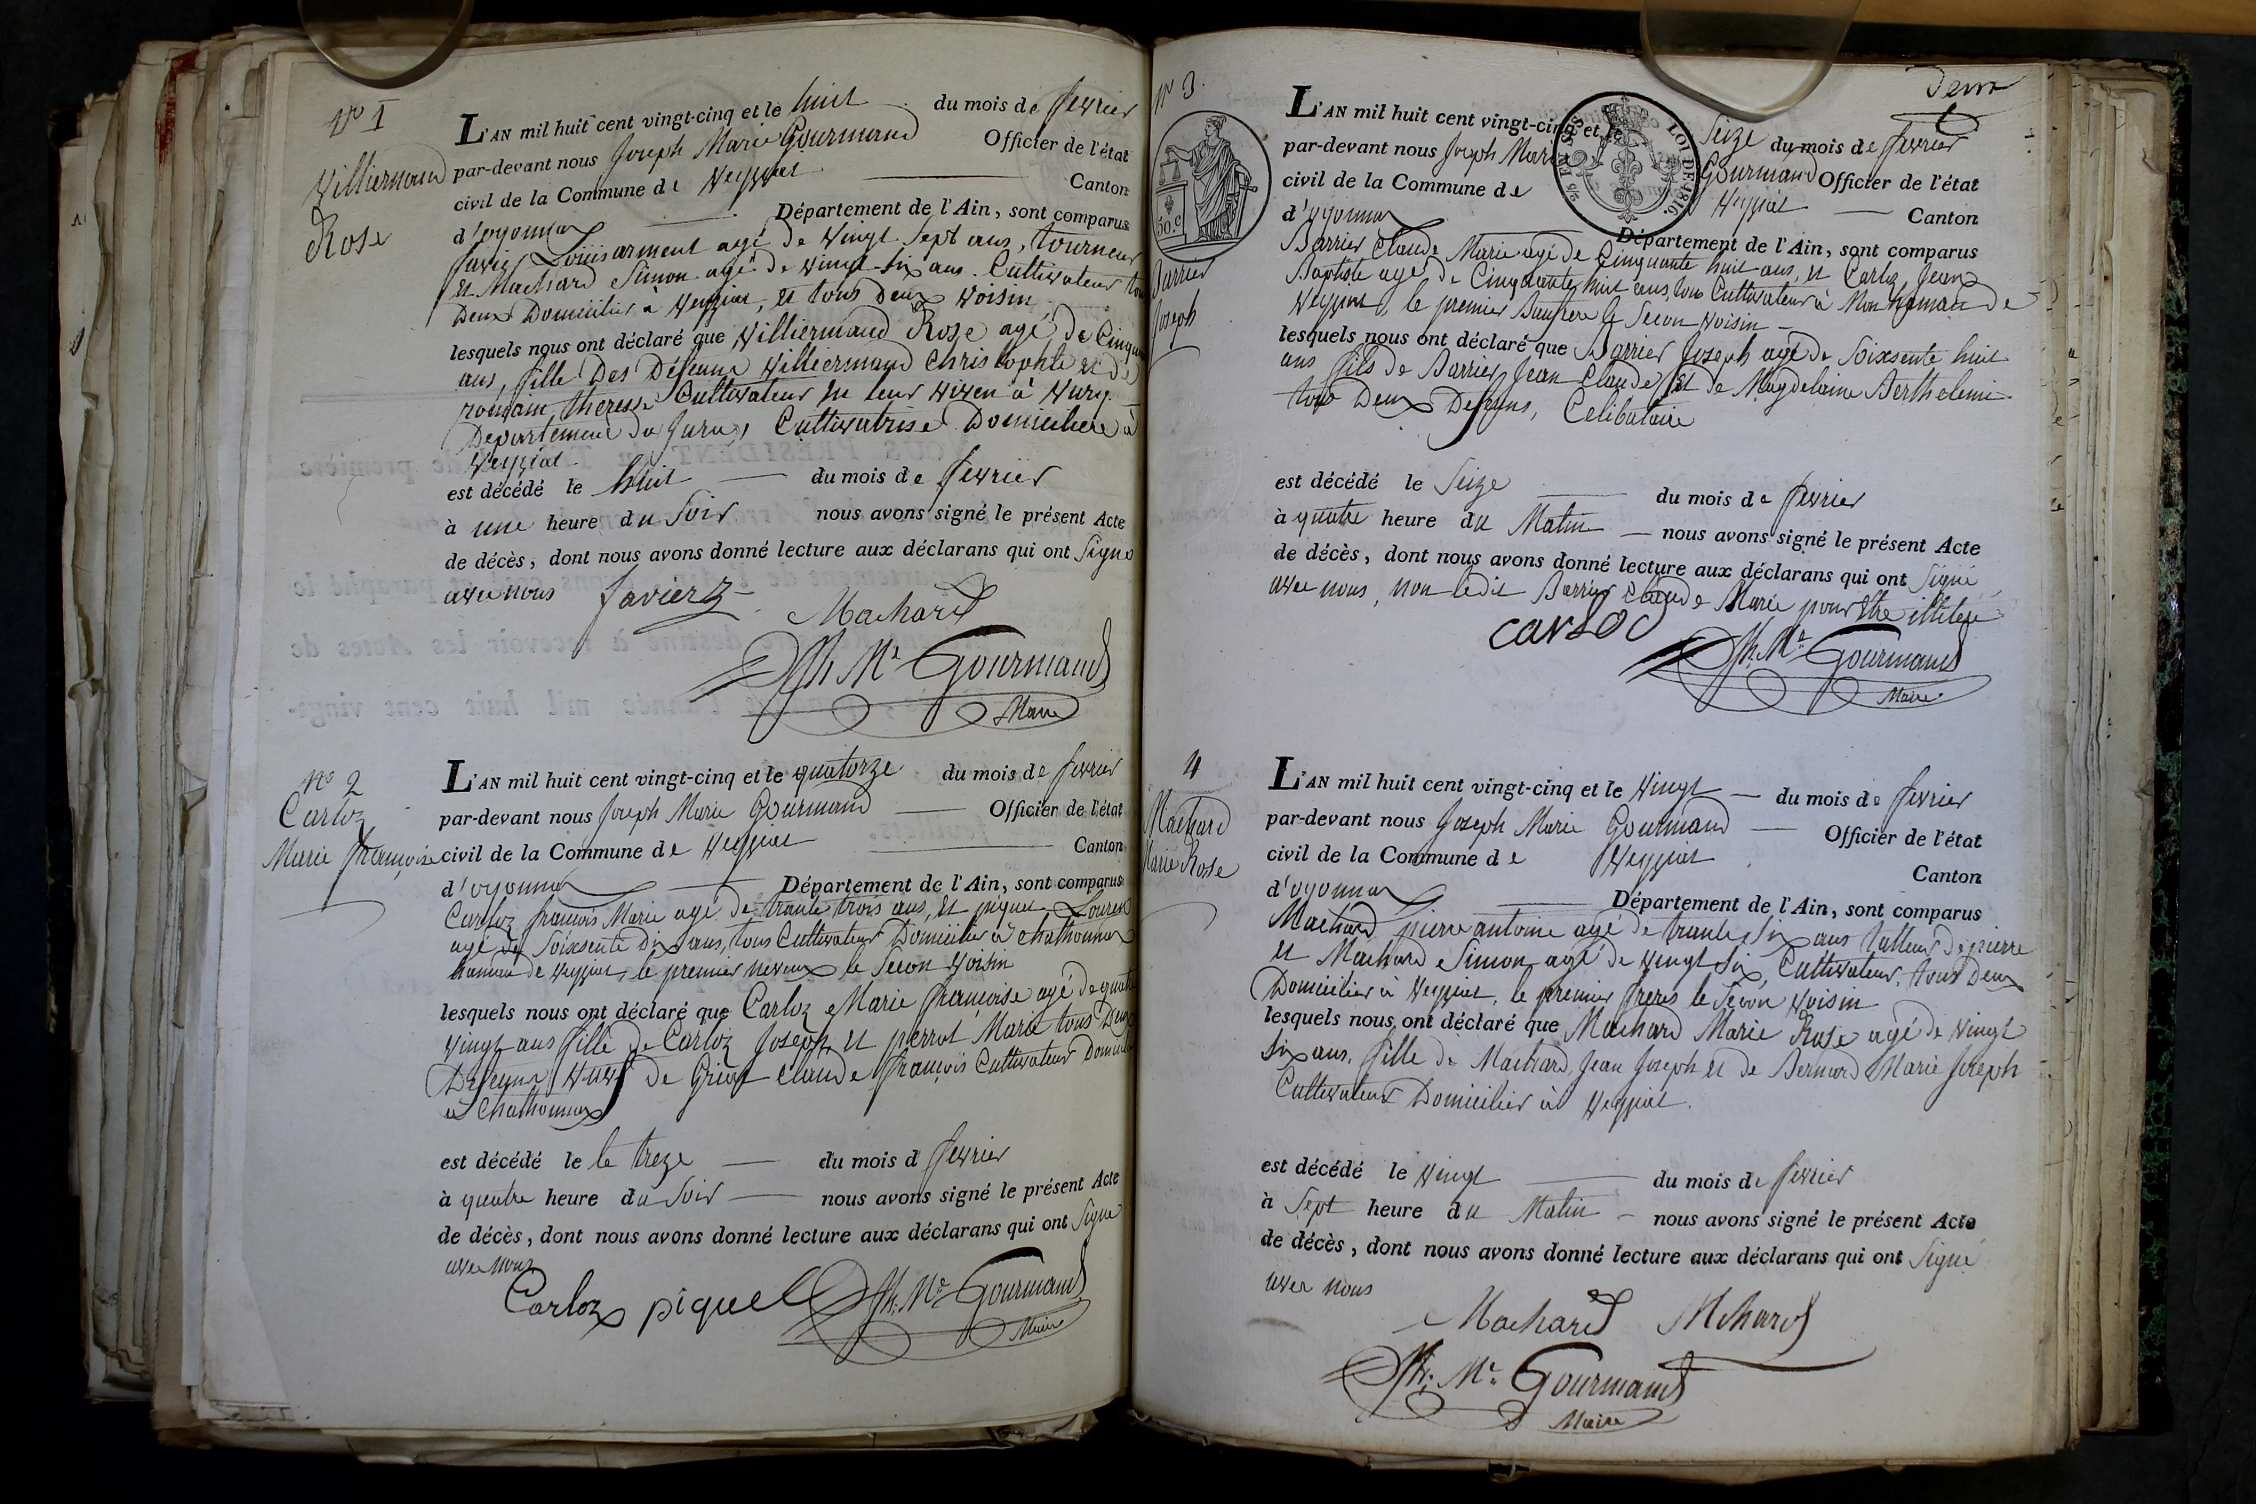 N° 1
Villiermaud
Rose
L'AN mil huit cent vingt-cinq et le huit du mois de fevrier
par-devant nous Joseph Marie Gourmand Officier de l'état
civil de la Commune de Veyziat Canton
d'oyonnax Département de l'Ain, sont comparus
favier Louis arment agé de Vingt Sept ans, tourneur
et Machard Simon agé de vingt-six ans Cultivateur tous
Deux Domicilier à Veyziat, et tous Deux Voisin
lesquels nous ont déclaré que Villiermaud Rose agé de Cinqu
ans, fille Des Défunt Villiermaud Christophle et de
romain therese Cultivateur Du leur viven à Viry
Departement du Jura, Cultivatrise Domiciliere à
Veyziat
est décédé le huit du mois de fevrier
à une heure du Soir nous avons signé le présent Acte
de décès, dont nous avons donné lecture aux déclarans qui ont Signé
avec nous favierz
Machard
Jh. Me Gourmand
Maire
N° 2
Carloz
Marie françoise
L'AN mil huit cent vingt-cinq et le quatorze du mois de fevrier
par-devant nous Joseph Marie Gourmand Officier de l'état
civil de la Commune de Veyziat Canton
d'oyonnax Département de l'Ain, sont comparus
Carloz francois Marie agé de trante trois ans, et piquet Louren
agé de Soixsente Dix ans, tous Cultivateur Domicilier à Chathonnax
hamau de Veyziat, le premier neveux le Secon Voisin
lesquels nous ont déclaré que Carloz Marie françoise agé de quatre
vingt ans fille de Carloz Joseph et perrot Marie tous Deux
Defeunt Veuve de Griot Claude françois Cultivateur Domicilier
à Chathonnax
est décédé le le treze du mois d fevrier
à quatre heure du Soir nous avons signé le présent Acte
de décès, dont nous avons donné lecture aux déclarans qui ont Signé
avec nous
Carloz piquet Jh. Me Gourmand
Maire
N° 3.
Deux
50.c
5/0 EN SUS
LOI DE 1816.
Barrier
Joseph
L'AN mil huit cent vingt-cinq et le Seize du mois de fevrier
par-devant nous Joseph Marie Gourmand Officier de l'état
civil de la Commune de Veyziat Canton
d'oyonnax Département de l'Ain, sont comparus
Barrier Claude Marie agé de Cinquante huit ans, et Carloz Jean
Baptiste agé de Cinquante huit ans, tous Cultivateur à hamau de
Veyziat, le premier Baufrere le Secon Voisin
lesquels nous ont déclaré que Barrier Joseph agé de Soixsente huit
ans fils de Barrier Jean Claude et de Magdelaine Berthelemi
tous Deux Defeuns, Celibataire
est décédé le Seize du mois de fevrier
à quatre heure du Matin nous avons signé le présent Acte
de décès, dont nous avons donné lecture aux déclarans qui ont Signé
avec nous, non ledit Barrier Claude Marie pour être illiteré
carloz
Jh. Me Gourmand
Maire
4
Machard
Marie Rose
L'AN mil huit cent vingt-cinq et le Vingt du mois de fevrier
par-devant nous Joseph Marie Gourmand Officier de l'état
civil de la Commune de Veyziat Canton
d'oyonnax Département de l'Ain, sont comparus
Machard pierre antoine agé de trante six ans tailleur de pierre
et Machard Simon agé de vingt six, Cultivateur, tous Deux
Domicilier à Veyziat, le premier freres le Secon Voisin
lesquels nous ont déclaré que Machard Marie Rose agé de vingt
six ans, fille de Machard Jean Joseph et de Bernard Marie Joseph
Cultivateur Domicilier à Veyziat.
est décédé le vingt du mois de fevrier
à Sept heure du Matin nous avons signé le présent Acte
de décès, dont nous avons donné lecture aux déclarans qui ont Signé
avec nous
Machard Mchard
Jh. Me Gourmand
Maire